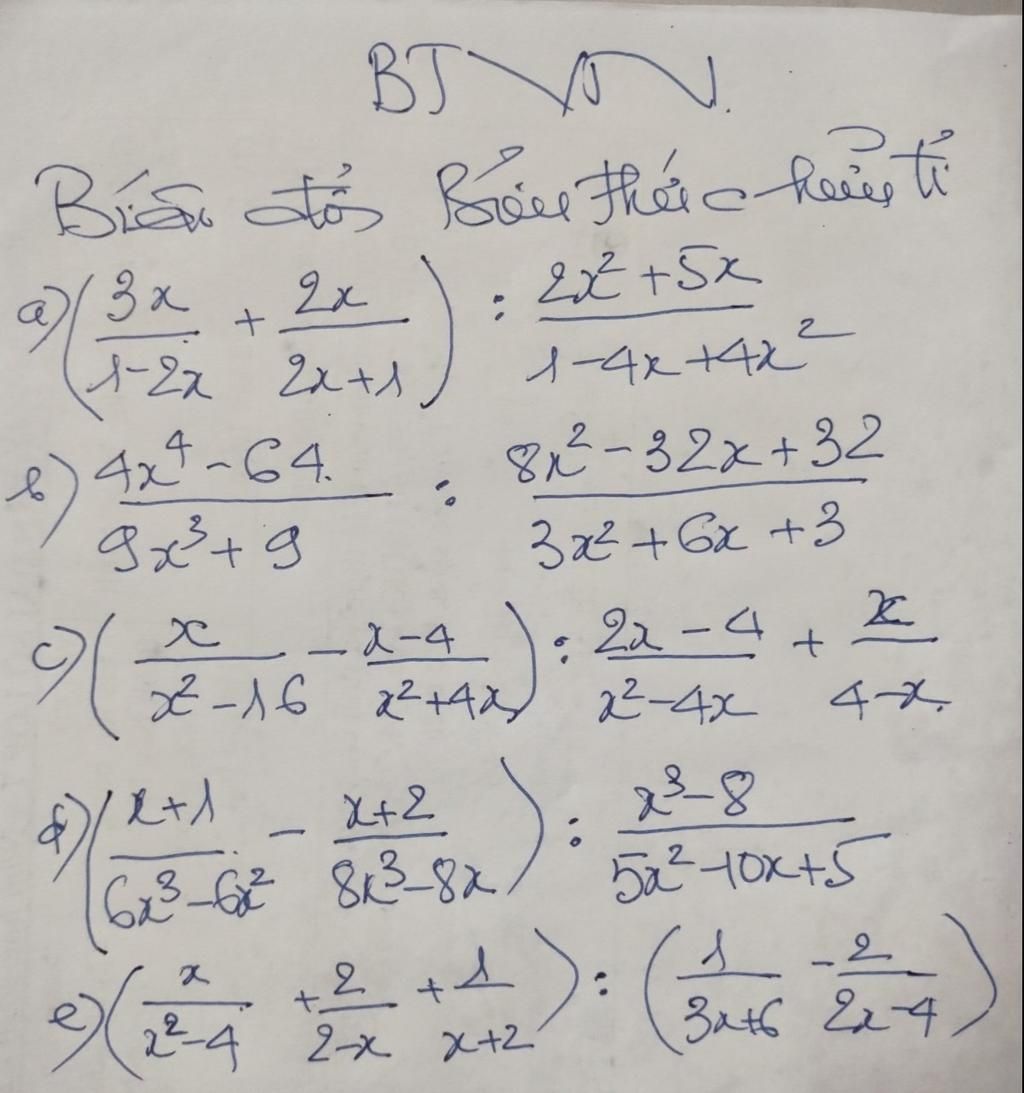 BTVN.
Biến đổi Biểu thức hữu tỉ
a) (3x/(1-2x) + 2x/(2x+1)) : (2x²+5x)/(1-4x+4x²)
b) (4x⁴-64)/(9x³+9) : (8x²-32x+32)/(3x²+6x+3)
c) (x/(x²-16) - (x-4)/(x²+4x)) : (2x-4)/(x²-4x) + x/(4-x)
d) ((x+1)/(6x³-6x²) - (x+2)/(8x³-8x)) : (x³-8)/(5x²-10x+5)
e) (x/(x²-4) + 2/(2-x) + 1/(x+2)) : (1/(3x+6) - 2/(2x-4))